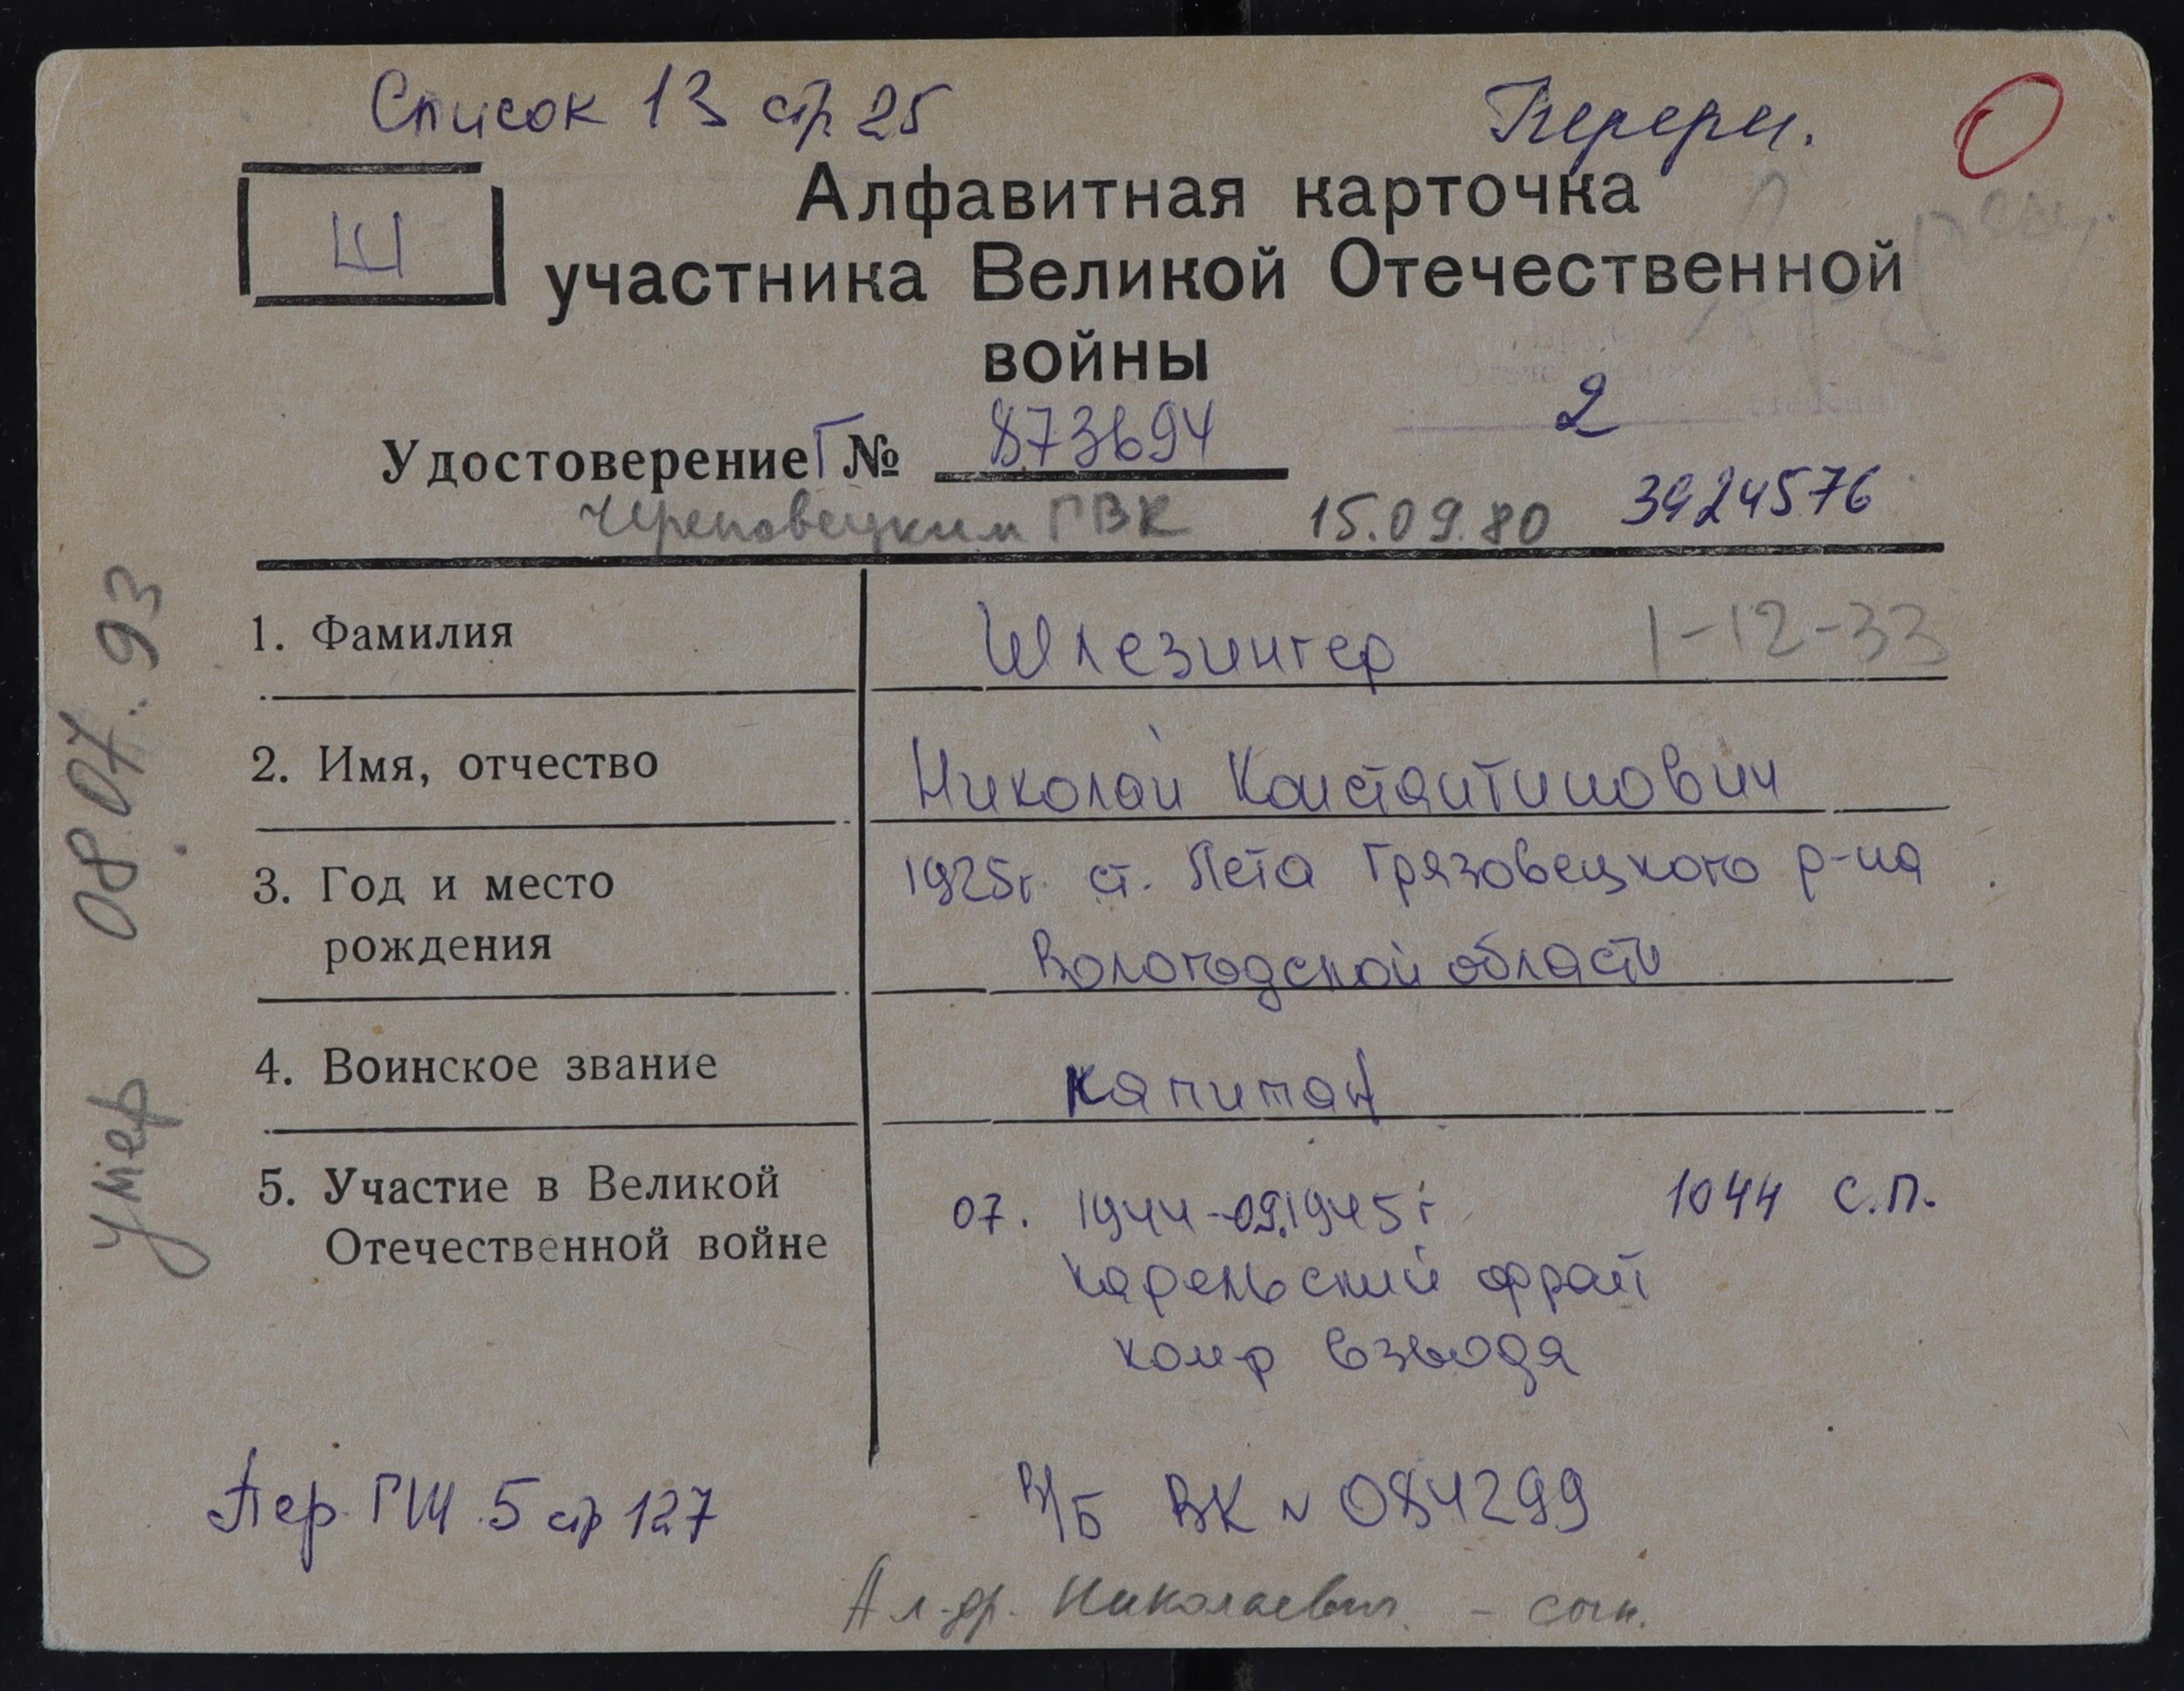 Список 13 стр 25
Перерег.
Ш
Алфавитная карточка
участника Великой Отечественной
войны
2
Удостоверение Г № 873694
Череповецким ГВК 15.09.80 3924576
1. Фамилия Шлезингер 1-12-33
2. Имя, отчество Николай Константинович
3. Год и место 1925г. ст. Лета Грязовецкого р-на
рождения Вологодской области
4. Воинское звание капитан
5. Участие в Великой 07. 1944-09.1945г. 1044 с.п.
Отечественной войне Карельский фронт
ком-р взвода
Пер. ГШ 5 стр 127
В/Б ВК № 084299
Ал-др. Николаевич. - сын.
умер 08.07.93